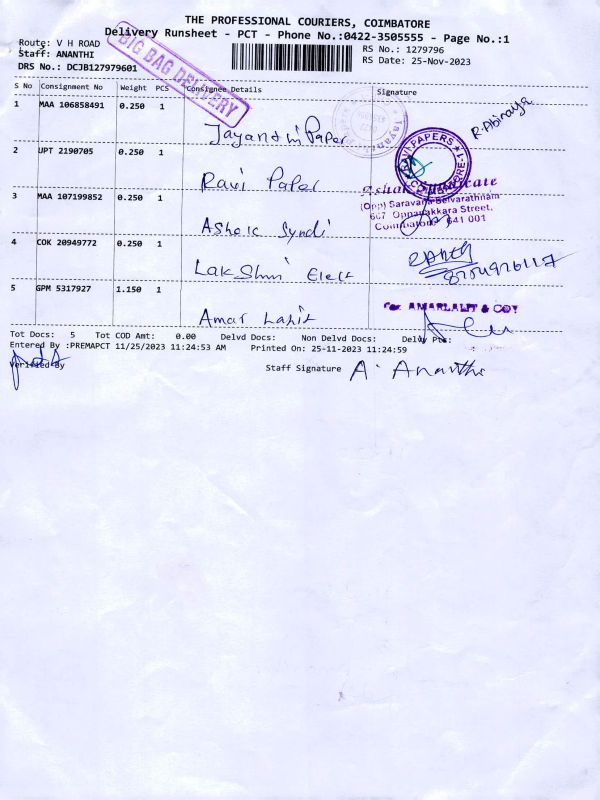 THE PROFESSIONAL COURIERS, COIMBATORE
Delivery Runsheet - PCT - Phone No.:0422-3505555 - Page No.:1
Route: V H ROAD RS No.: 1279796
Staff: ANANTHI RS Date: 25-Nov-2023
DRS No.: DCJB127979601
BIG BAG DELIVERY
S No Consignment No Weight PCS Consignee Details Signature
1 MAA 106858491 0.250 1
Jayanthi Paper R.Abinaya
2 UPT 2190705 0.250 1
Ravi Paper
RAVI PAPERS
3 MAA 107199852 0.250 1
(Opp) Saravana Selvarathnam
607, Oppanakkara Street,
Coimbatore 641 001
Ashok Syndi
4 COK 20949772 0.250 1
Lakshmi Elect
5 GPM 5317927 1.150 1
For AMARLALIT & COY
Amar Lalit
Tot Docs: 5 Tot COD Amt: 0.00 Delvd Docs: Non Delvd Docs: Delvy Pts:
Entered By :PREMAPCT 11/25/2023 11:24:53 AM Printed On: 25-11-2023 11:24:59
Verified By Staff Signature A. Ananthi